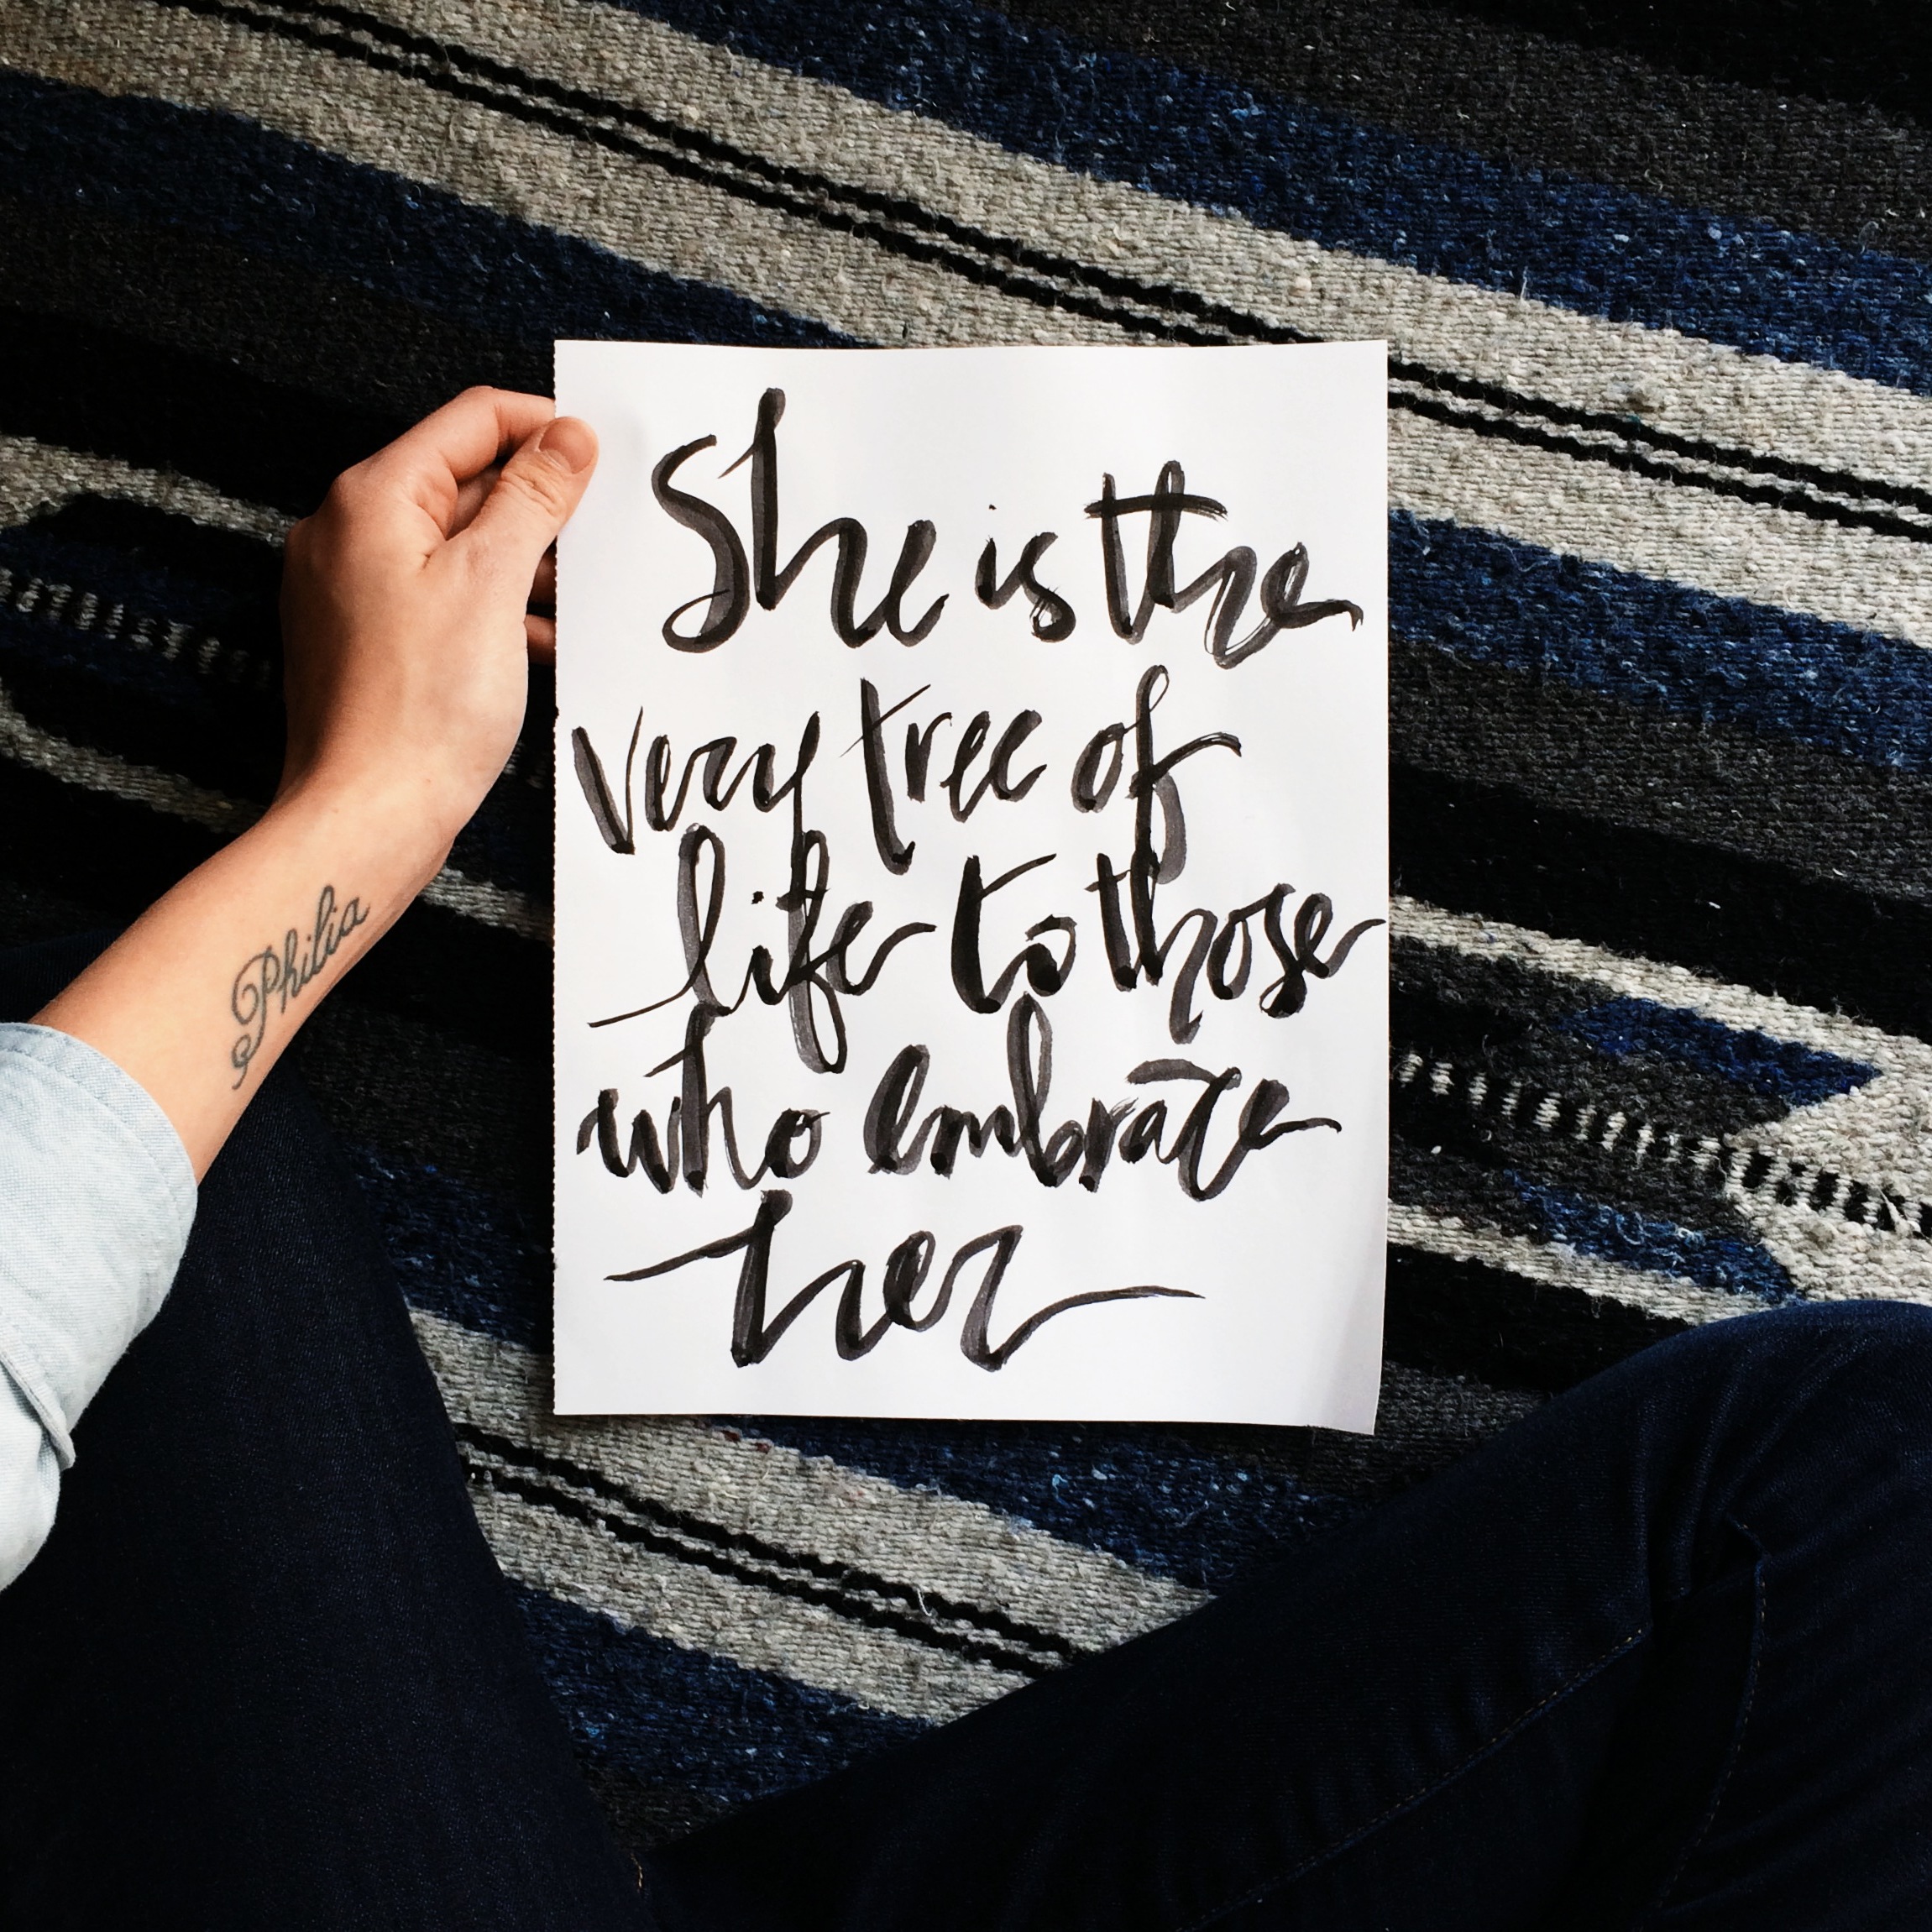 She is the
very tree of
life to those
who embrace
her
Philia